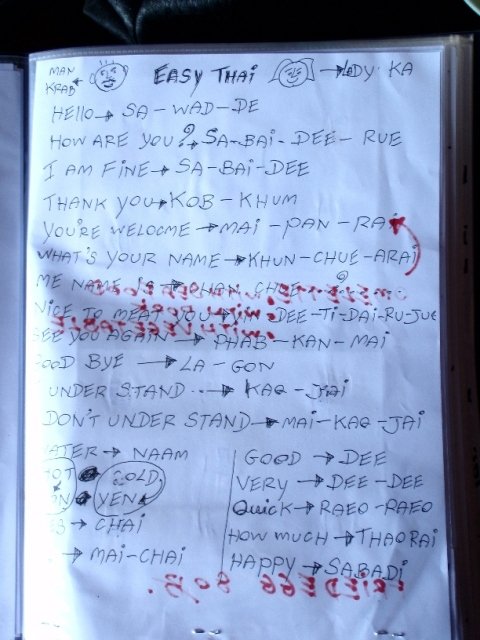 MAN KRAB ← EASY THAI → LADY KA
HELLO → SA - WAD - DE
HOW ARE YOU? → SA - BAI - DEE - RUE
I AM FINE → SA - BAI - DEE
THANK YOU → KOB - KHUM
YOU'RE WELCOME → MAI - PAN - RAI
WHAT'S YOUR NAME → KHUN - CHUE - ARAI
ME NAME IS → CHAN CHUE
NICE TO MEAT YOU DEE - TI - DAI - RU - JUK
SEE YOU AGAIN → PHAB - KAN - MAI
GOOD BYE → LA - GON
UNDER STAND → KAO - JAI
DON'T UNDER STAND → MAI - KAO - JAI
WATER → NAAM
HOT COLD
YEN
→ CHAI
→ MAI - CHAI
GOOD → DEE
VERY → DEE - DEE
QUICK → RAEO - RAEO
HOW MUCH → THAORAI
HAPPY → SABADI
FRIED EGG 80 B.